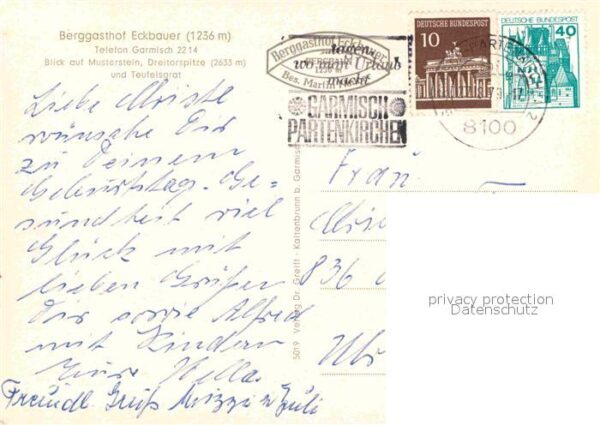 Berggasthof Eckbauer (1236 m)
Telefon Garmisch 2214
Blick auf Musterstein, Dreitorspitze (2633 m)
und Teufelsgrat
Berggasthof Eckbauer
1236 m
Bes. Martin
tagen
wo man Urlaub
macht
GARMISCH
PARTENKIRCHEN
10
DEUTSCHE BUNDESPOST
DEUTSCHE BUNDESPOST
40
8100
Liebe
wünsche Dir
zu Deinem
Geburtstag Ge=
sundheit viel
Glück mit
lieben Grüßen
Dir sowie Alfred
mit Kindern
Eure Hella
Freundl. Gruß Mizzi u Juli
5019 Verlag Dr. Kaltenbrunn b. Garmisch
Frau
836
privacy protection
Datenschutz